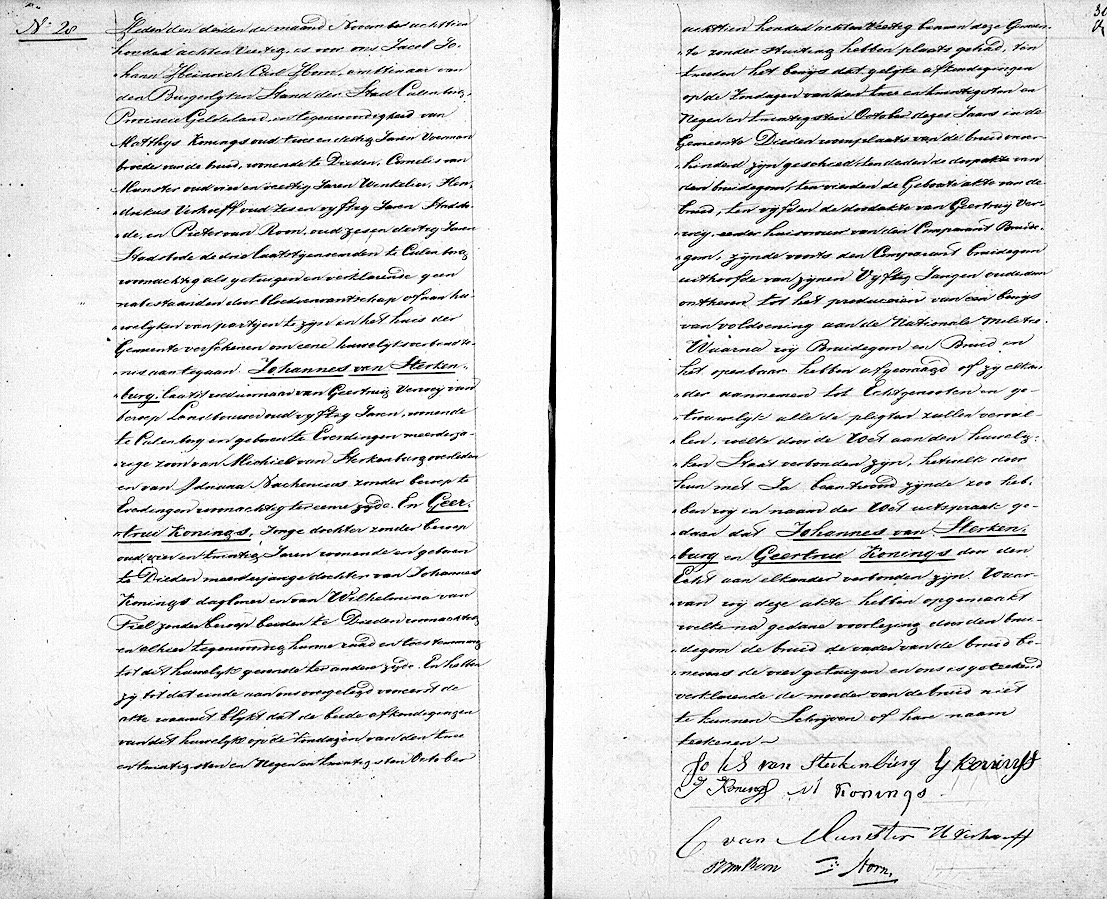 No 28
Heden den derden der maand November achttien
honderd achten Veertig, is voor ons Jacob Jo-
hann Heinrich Carl Horn, ambtenaar van
den Burgerlyken Stand der Stad Culenborg,
Provincie Gelderland, in tegenwoordigheid van
Matthys Konings oud twee en dertig Jaren Voerman
broeder van de bruid, wonende te Dieden, Cornelis van
Munster oud vier en veertig Jaren Winkelier, Hen-
drikus Verhoeff oud zes en vyftig Jaren Stadsbo-
de, en Pieter van Room, oud zes en dertig Jaren
Stadsbode de drie laatstgenoemden te Culenborg
woonachtig als getuigen en verklarende geen
nabestaanden door bloedverwantschap of aan hu-
welyken van partijen te zijn in het huis der
Gemeente verschenen om eene huwelyksverbindte-
nis aantegaan. Johannes van Sterken-
burg, laatst weduwnaar van Geertruij Verwey van
beroep Landbouwer oud vyftig Jaren, wonende
te Culenborg en geboren te Everdingen meerderja-
rige zoon van Michiel van Sterkenburg overleden
en van Adriana Nachenius zonder beroep te
Everdingen woonachtig ter eenre zyde. En Geer-
trui Konings, Jonge dochter zonder beroep
oud vier en twintig Jaren wonende en geboren
te Dieden meerderjarige dochter van Johannes
Konings daglooner en van Wilhelmina van
Tiel zonder beroep beiden te Dieden woonachtig
en alhier tegenwoordig hunne raad en toestemming
tot dit huwelyk gevende ter andere zyde. En hebben
zy tot dat einde aan ons overgelegd vooreerst de
akte waaruit blykt dat de beide afkondigingen
van dit huwelyk op de Zondagen van den twee
en twintigsten en Negen en twintigsten October
achttien honderd achten Veertig binnen deze Gemeen-
te zonder stuiting hebben plaats gehad, ten
tweeden het bewijs dat gelijke afkondigingen
op de Zondagen van den twee en twintigsten en
Negen en twintigsten October dezes Jaars in de
Gemeente Dieden woonplaats van de bruid onver-
hinderd zijn geschied, ten derden de doopakte van
den bruidegom, ten vierden de Geboorteakte van de
bruid, ten vijfden de doodakte van Geertruij Ver-
weij, eerder huisvrouw van den Comparant Bruide-
gom, zijnde voorts den Comparant bruidegom
uithoofde van zijnen Vyftig Jarigen ouderdom
ontheven tot het produceeren van een bewijs
van voldoening aan de Nationale Militie
Waarna wij Bruidegom en Bruid in
het openbaar hebben afgevraagd of zij elkan-
der aannemen tot Echtgenooten en ge-
trouwelyk alle de plegten zullen vervul-
len, welke door de Wet aan den huwelij-
ken Staat verbonden zijn, hetwelk door
hun met Ja beantwoord zijnde zoo heb-
ben wij in naam der Wet uitspraak ge-
daan dat Johannes van Sterken-
burg en Geertrui Konings door den
Echt aan elkander verbonden zijn. Waar-
van wij deze akte hebben opgemaakt
welke na gedane voorlezing door den brui-
degom de bruid de vader van de bruid be-
nevens de vier getuigen en ons is geteekend
verklarende de moeder van de bruid niet
te kunnen Schrijven of haar naam
teekenen
van Sterkenburg G Konings
J Konings M Konings
C van Munster H Verhoeff
Horn